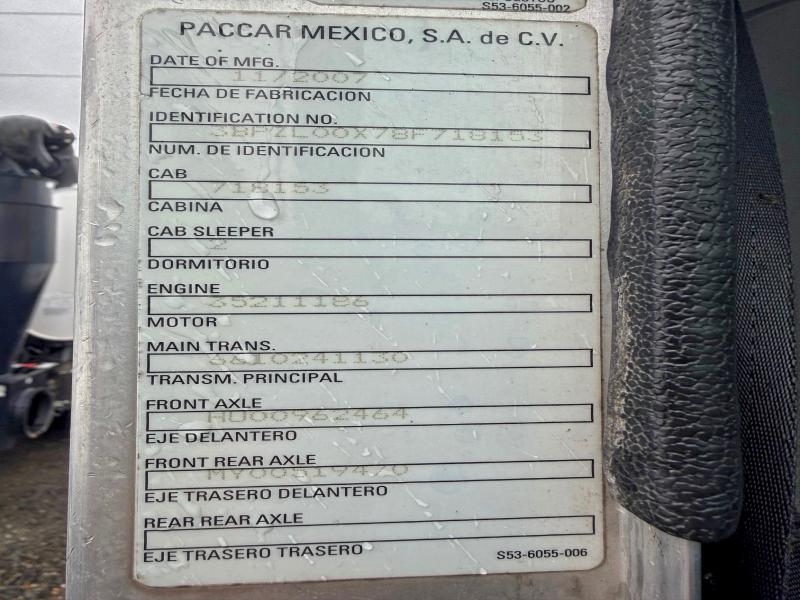 S53-6055-002
PACCAR MEXICO, S.A. de C.V.
DATE OF MFG.
11/2007
FECHA DE FABRICACION
IDENTIFICATION NO.
3BPZL00X78F718153
NUM. DE IDENTIFICACION
CAB
718153
CABINA
CAB SLEEPER
2
DORMITORIO
ENGINE
35211186
MOTOR
MAIN TRANS.
6610241130
TRANSM. PRINCIPAL
FRONT AXLE
HU00962464
EJE DELANTERO
FRONT REAR AXLE
MY00519470
EJE TRASERO DELANTERO
REAR REAR AXLE
EJE TRASERO TRASERO
S53-6055-006